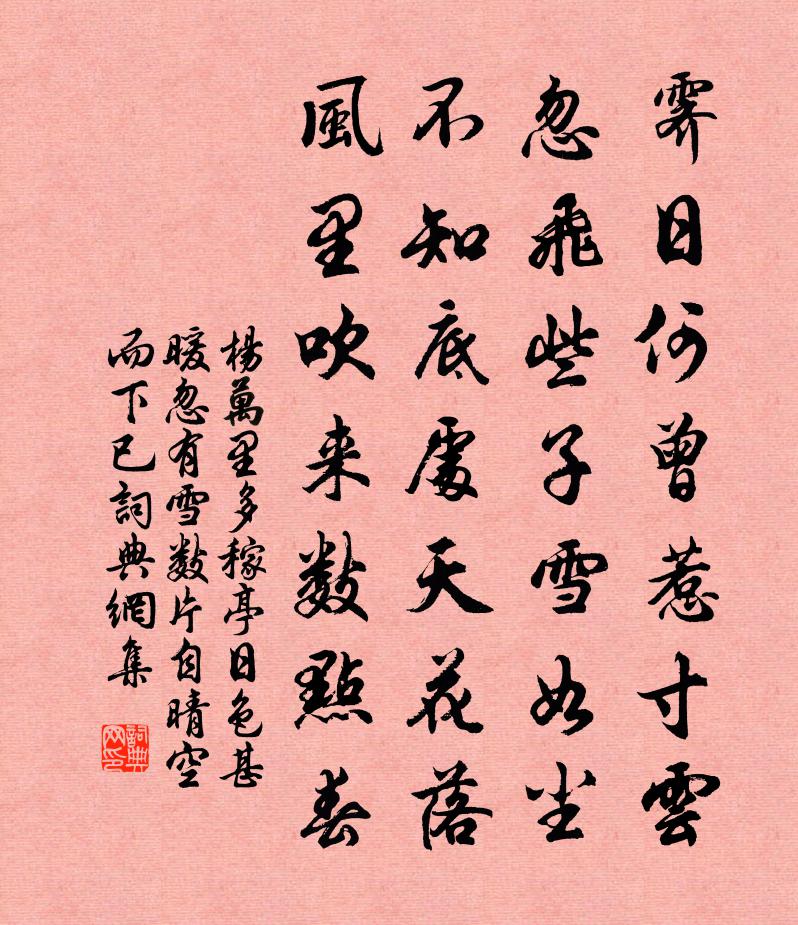 霽日何曾惹寸雲
忽飛些子雪如尘
不知底處天花落
風里吹来数點春
楊萬里多稼亭日色甚
暖忽有雪数片自晴空
而下已詞典網集
詞典网印